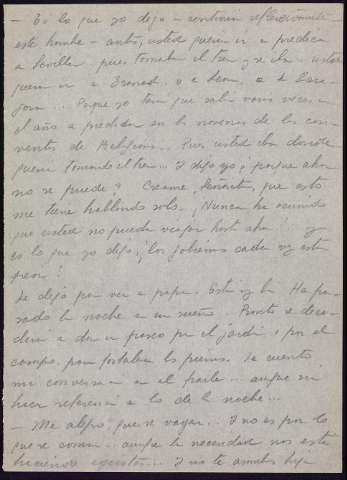 - Es lo que yo digo - continúa reflexionando
este hombre - antes, usted quería ir a predicar
a Sevilla, pues, tomaba el tren y se iba. Usted
quería ir a Granada, o a León, o a Zara-
goza... Porque yo tenía que salir varias veces en
el año a predicar en las novenas de los con-
ventos de Religiosas. Pues usted iba donde
quería tomando el tren... Y digo yo, ¿porque ahora
no se puede? Créame, Señorita, que esto
me tiene hablando solo. ¡Nunca ha ocurrido
que usted no pueda viajar hasta ahora! Y
es lo que yo digo, ¡los gobiernos cada vez están
peor!
Le dejo para ver a papá. Está muy bien. Ha pa-
sado la noche en un sueño. Pronto se deci-
dirá a dar un paseo por el jardín y por el
campo, para fortalecer las piernas. Le cuento
mi conversación con el fraile... aunque sin
hacer referencia a lo de la noche...
- Me alegro que se vayan... Y no es por lo
que se comen... aunque la necesidad nos está
haciendo egoístas... Y no te asustes hija